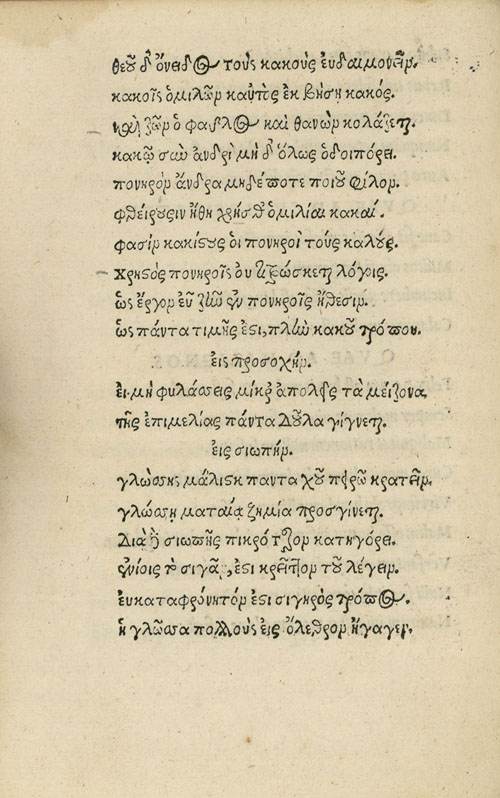 θεοῦ δ' ὄνειδος τοὺς κακοὺς εὐδαιμονεῖν.
κακοῖς ὁμιλῶν καυτὸς ἐκβήσῃ κακός.
καὶ ζῶν ὁ φαῦλος καὶ θανὼν κολάζεται.
κακῷ σὺν ἀνδρὶ μὴ δ' ὅλως ὁδοιπόρει.
πονηρὸν ἄνδρα μηδέποτε ποιοῦ φίλον.
φθείρουσιν ἤθη χρήσθ' ὁμιλίαι κακαί.
φασὶν κακίστους οἱ πονηροὶ τοὺς καλούς.
χρηστὸς πονηροῖς οὐ τιτρώσκεται λόγοις.
ὡς ἔργον εὖ ζῆν ἐν πονηροῖς ἤθεσιν.
ὡς πάντα τιμῆς ἐστι, πλὴν κακοῦ τρόπου.
εἰς προσοχήν.
εἰ μὴ φυλάσσεις μίκρ' ἀπολεῖς τὰ μείζονα.
τῆς ἐπιμελίας πάντα δοῦλα γίγνεται.
εἰς σιωπήν.
γλώσσης μάλιστα πανταχοῦ πειρῶ κρατεῖν.
γλώσσῃ ματαίᾳ ζημία προσγίνεται.
διὰ δὲ σιωπῆς πικρότερον κατηγόρει.
ἐνίοις τὸ σιγᾶν, ἐστι κρεῖττον τοῦ λέγειν.
εὐκαταφρόνητόν ἐστι σιγηρὸς τρόπος.
ἡ γλῶσσα πολλοὺς εἰς ὄλεθρον ἤγαγεν.